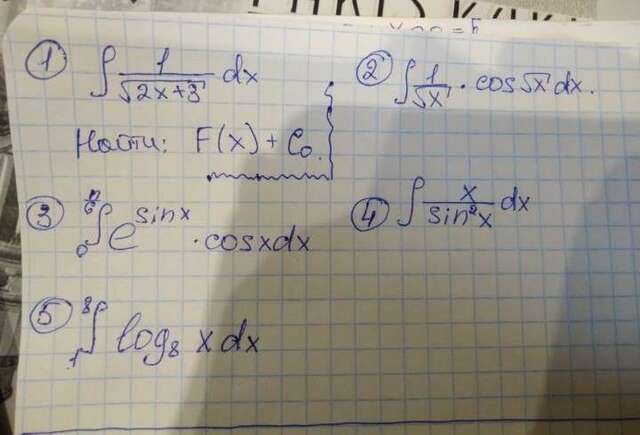 ① ∫ 1/√(2x+3) dx
Найти: F(x) + C₀.
② ∫ 1/√x · cos√x dx.
③ ∫₀^(π/6) e^(sinx) · cosxdx
④ ∫ x/sin²x dx
⑤ ∫₁⁸ log₈ x dx